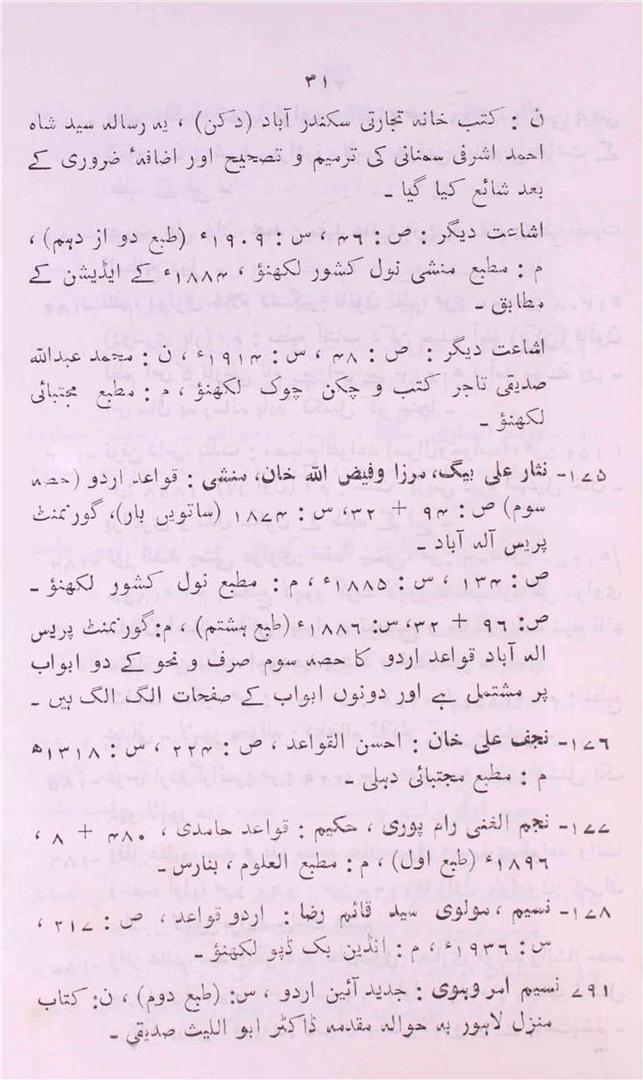 ۳۱
ن : کتب خانہ تجارتی سکندر آباد (دکن) ، یہ رسالہ سید شاہ
احمد اشرفی سمنانی کی ترمیم و تصحیح اور اضافۂ ضروری کے
بعد شائع کیا گیا ۔
اشاعت دیگر : ص : ۴۶ ، س : ۱۹۰۹ء (طبع دو از دہم) ،
م : مطبع منشی نول کشور لکھنؤ ، ۱۸۸۴ء کے ایڈیشن کے
مطابق ۔
اشاعت دیگر : ص : ۴۸ ، س : ۱۹۱۴ء ، ن : محمد عبداللہ
صدیقی تاجر کتب و چکن چوک لکھنؤ ، م : مطبع مجتبائی
لکھنؤ ۔
۱۷۵۔ نثار علی بیگ، مرزا و فیض اللہ خان، منشی : قواعد اردو (حصہ
سوم) ص : ۹۴ + ۳۲، س : ۱۸۷۴ (ساتویں بار)، گورنمنٹ
پریس الہ آباد ۔
ص : ۱۳۴ ، س : ۱۸۸۵ء ، م : مطبع نول کشور لکھنؤ ۔
ص : ۹۶ + ۳۲، س : ۱۸۸۶ء (طبع ہشتم) ، م : گورنمنٹ پریس
الہ آباد قواعد اردو کا حصہ سوم صرف و نحو کے دو ابواب
پر مشتمل ہے اور دونوں ابواب کے صفحات الگ الگ ہیں ۔
۱۷۶۔ نجف علی خان : احسن القواعد ، ص : ۲۲۴ ، س : ۱۳۱۸ھ
م : مطبع مجتبائی دہلی ۔
۱۷۷۔ نجم الغنی رام پوری ، حکیم : قواعد حامدی ، ۴۸۰ + ۸ ،
۱۸۹۶ء (طبع اول) ، م : مطبع العلوم ، بنارس ۔
۱۷۸۔ نسیم ، مولوی سید قائم رضا : اردو قواعد ، ص : ۲۱۷ ،
س : ۱۹۳۶ء ، م : انڈین بک ڈپو لکھنؤ ۔
۲۹۱ نسیم امروہوی : جدید آئین اردو ، س : (طبع دوم) ، ن : کتاب
منزل لاہور بہ حوالہ مقدمہ ڈاکٹر ابو اللیث صدیقی ۔